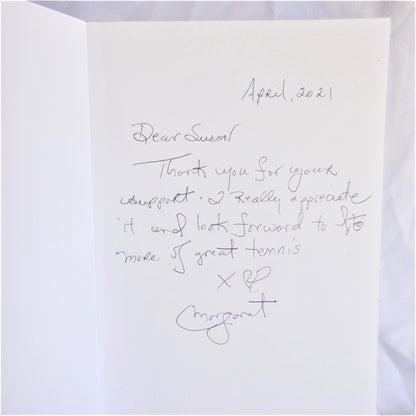 April, 2021
Dear Susan
Thank you for your
support. I Really appreciate
it and look forward to lots
more of great tennis
X
Margaret